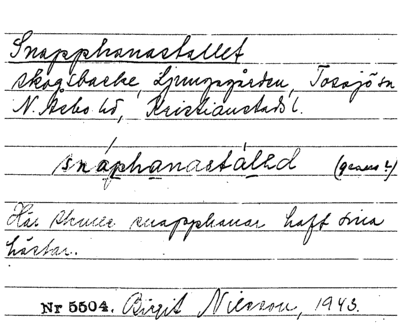 Snapphanastallet
skogsbacke, Ljungagården, Tosjö sn
N. Åsbo hd, Kristianstads l.
snáphanastáled (genus?)
Här skulle snapphanar haft sina
hästar.
Nr 5504. Birgit Nilsson, 1943.